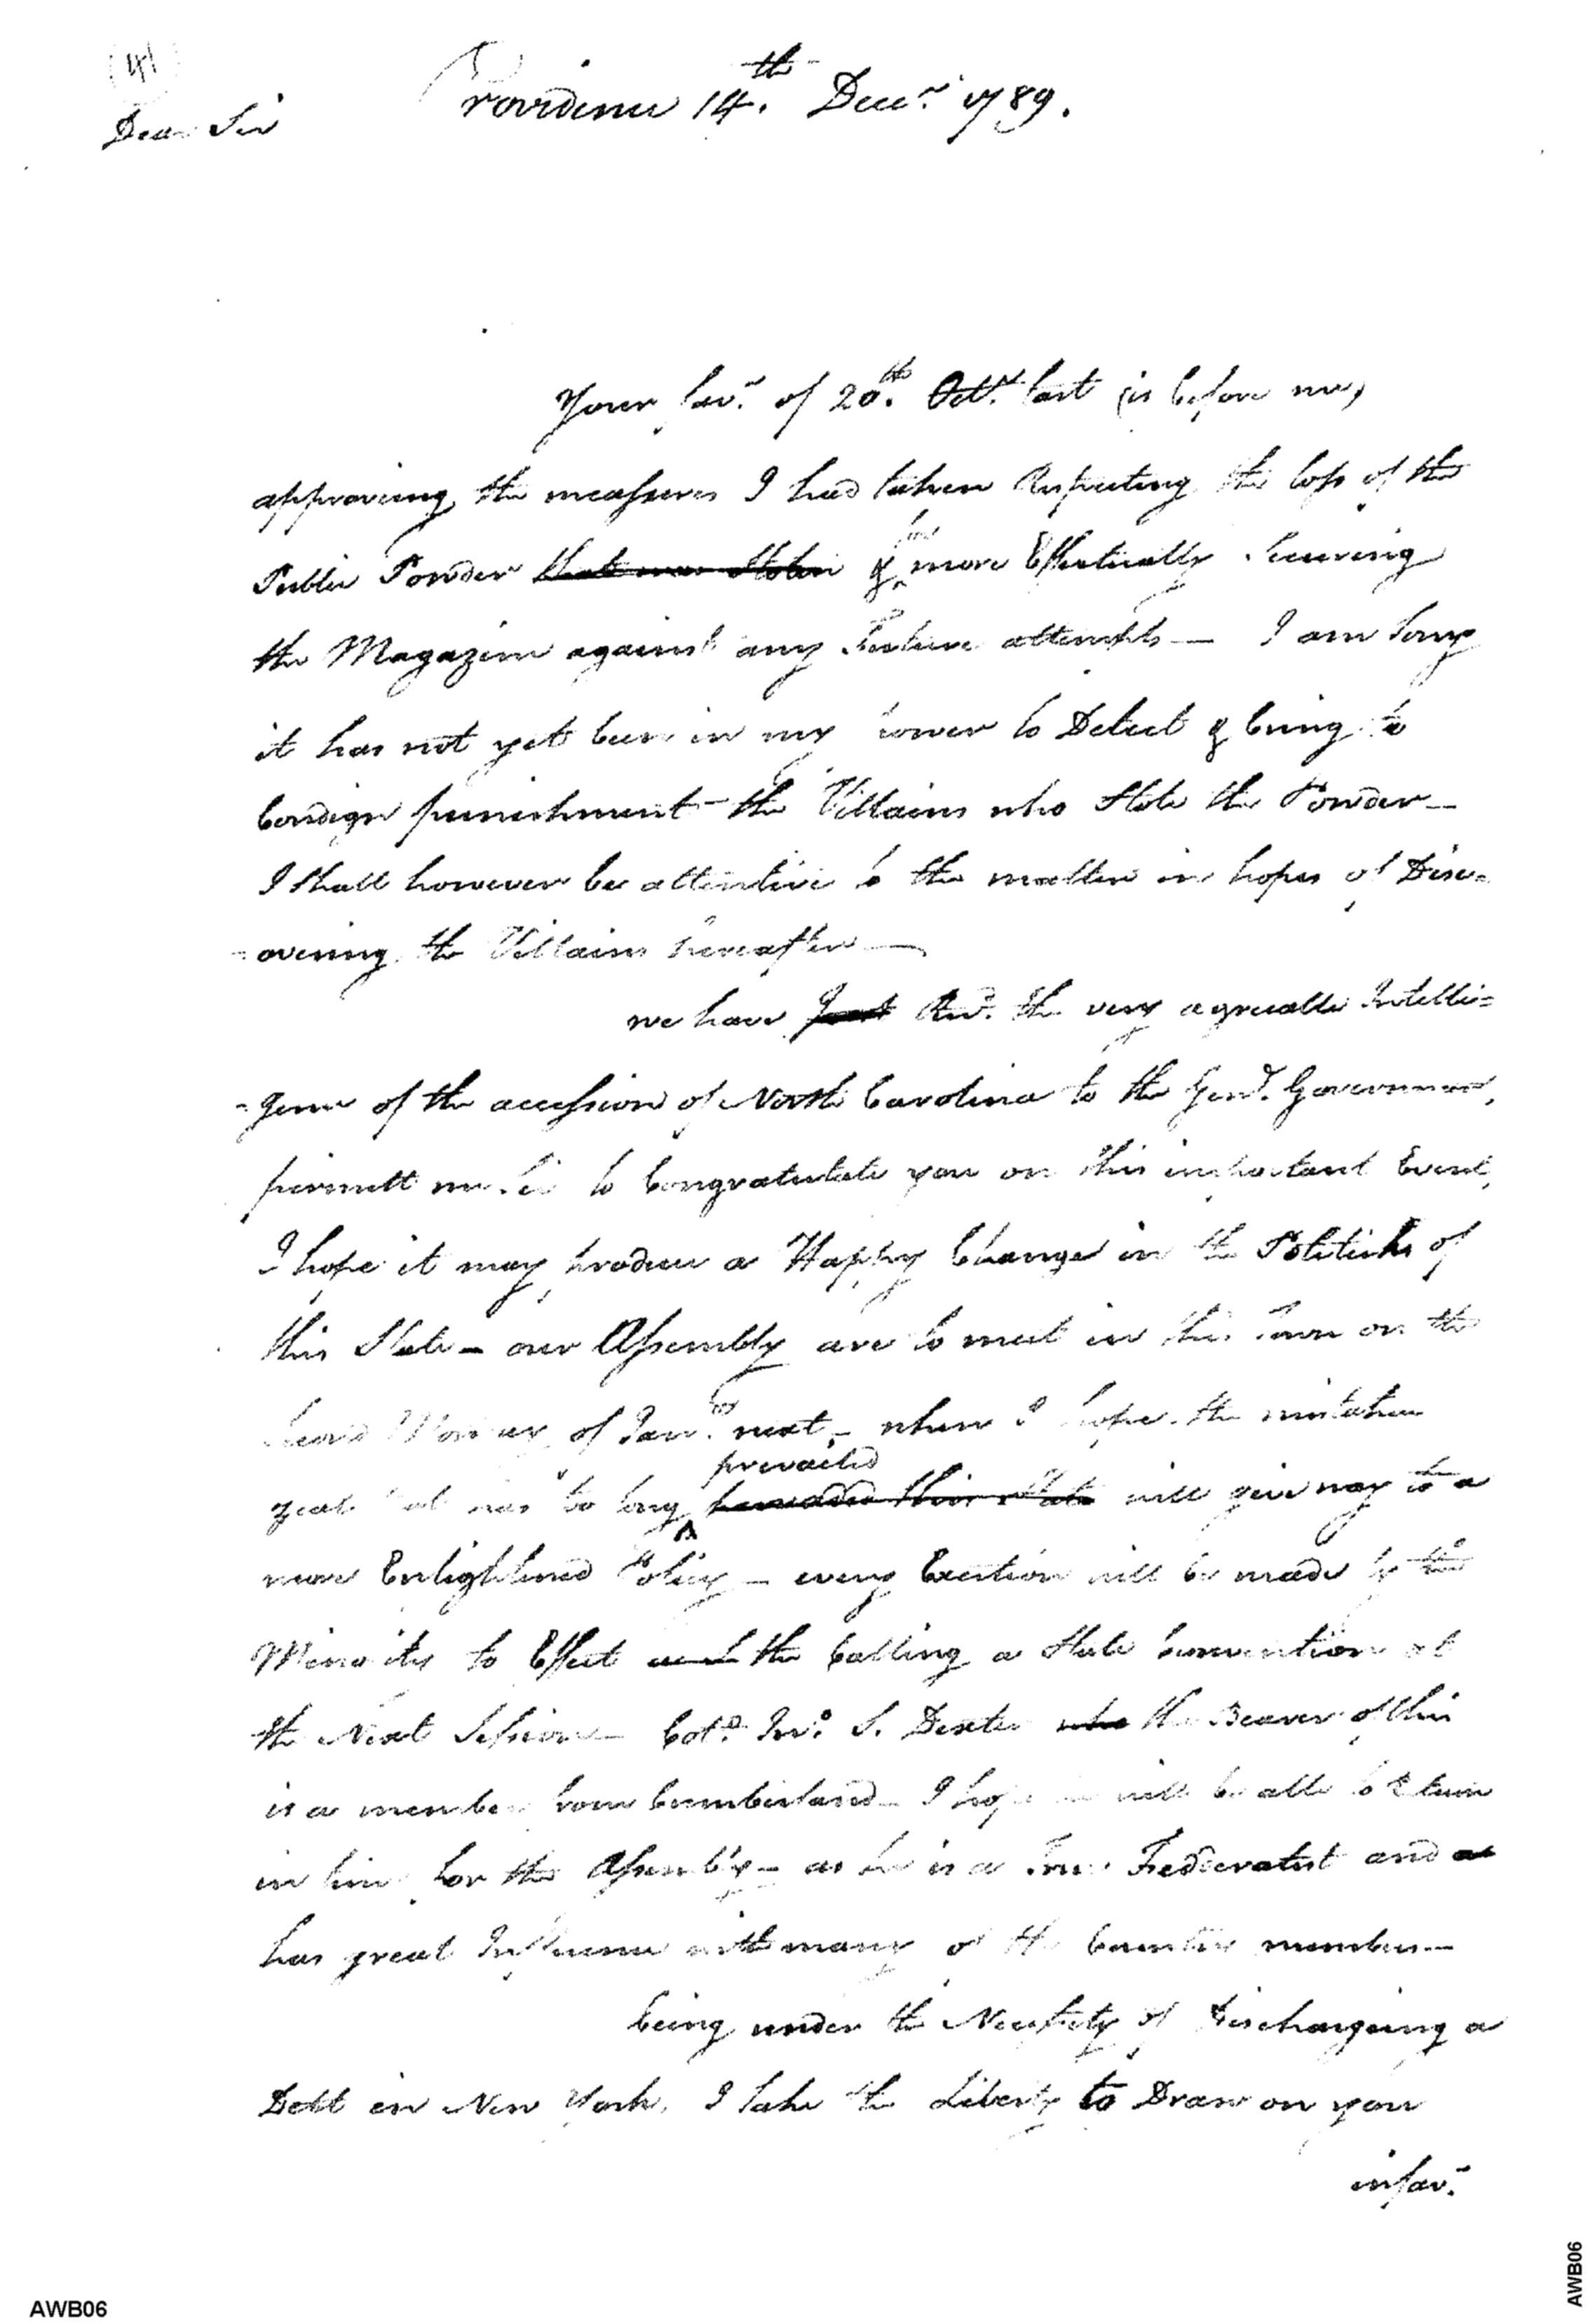 (4)
Providence 14.th Decr. 1789.
Dear Sir
Your favr. of 20.th Octr. last is before me,
approveing the measures I had taken Respecting the loss of the
Public Powder that was Stolen & for more Effectually Secureing
the Magazine against any Future attempts — I am Sorry
it has not yet been in my power to Detect & bring to
Condign punishment — the Villains who Stole the Powder —
I Shall however be attentive to the matter in hopes of Disc-
-overing the Villains hereafter —
we have just Recd. the very agreeable Intelli=
-gence of the accession of North Carolina to the Genl. Government,
permitt me Sir to Congratulate you on this important Event,
I hope it may produce a Happy Change in the Politicks of
this State — our Assembly are to meet in this Town on the
Second Monday of Jany. next, — when I hope the mistaken
prevailed
zeal that has too long pervaded this State will give way to a
more Enlightened Policy — every Exertion will be made by the
Minority to Effect the Calling a State Convention at
the Next Session — Colo. Jno. S. Dexter who the Bearer of this
is a member from Cumberland — I hope will be able to Return
in time for the Assembly — as he is a True Federalist and
has great Influence with many of the Country members —
being under the Necessity of Dischargeing a
Debt in New York, I take the Liberty to Draw on you
in favr.
AWB06
AWB06